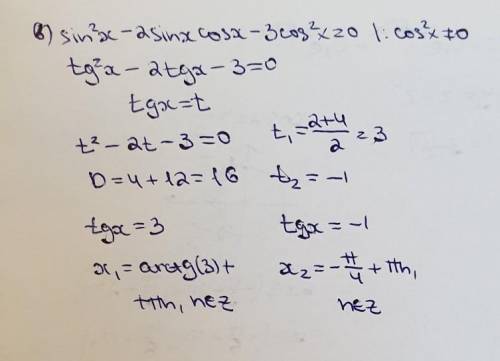 в) sin²x - 2sinx cosx - 3cos²x = 0 |: cos²x ≠ 0
tg²x - 2tgx - 3 = 0
tgx = t
t² - 2t - 3 = 0
t₁ = (2+4)/2 = 3
D = 4 + 12 = 16
t₂ = -1
tgx = 3
tgx = -1
x₁ = arctg(3) +
πn, n∈Z
x₂ = -π/4 + πn,
n∈Z